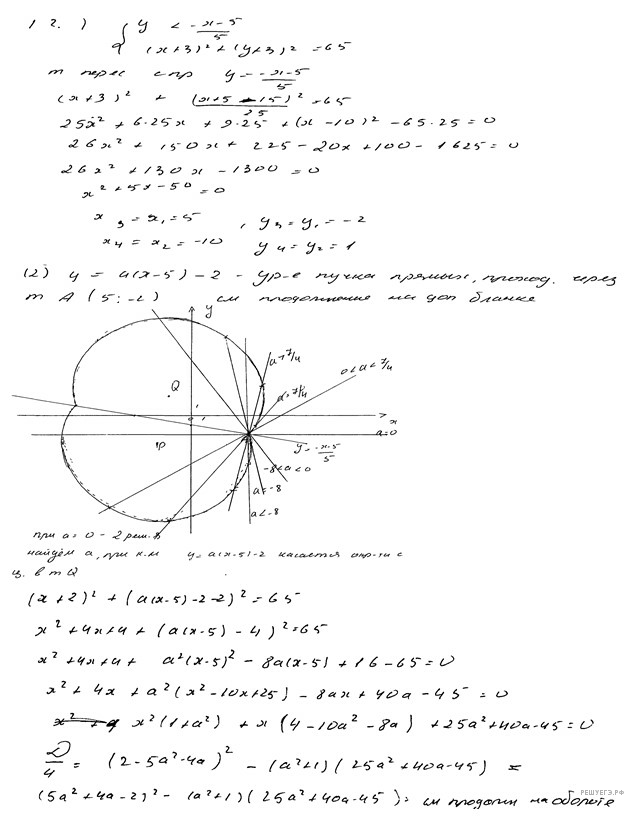 1 2. ) { y < (-x-5)/5
(x+3)² + (y+3)² = 65
т перес с пр y = (-x-5)/5
(x+3)² + (x+5-15)²/25 = 65
25x² + 6·25x + 9·25 + (x-10)² - 65·25 = 0
26x² + 150x + 225 - 20x + 100 - 1625 = 0
26x² + 130x - 1300 = 0
x² + 5x - 50 = 0
x₃ = x₁ = 5 , y₃ = y₁ = -2
x₄ = x₂ = -10 y₄ = y₂ = 1
(2) y = a(x-5) - 2 - ур-е пучка прямых, проход. через
т A (5; -2) см продолжение на доп бланке
y
a>7/4
0<a<7/4
a=7/4
Q
1
0 1
x
a=0
P
y = (-x-5)/5
-8<a<0
a=-8
a<-8
при a = 0 - 2 реш.
найдём a, при к-м y = a(x-5)-2 касается окр-ти с
ц. в т Q
(x+2)² + (a(x-5)-2-2)² = 65
x² + 4x + 4 + (a(x-5) - 4)² = 65
x² + 4x + 4 + a²(x-5)² - 8a(x-5) + 16 - 65 = 0
x² + 4x + a²(x² - 10x + 25) - 8ax + 40a - 45 = 0
x²(1+a²) + x(4 - 10a² - 8a) + 25a² + 40a - 45 = 0
D/4 = (2 - 5a² - 4a)² - (a²+1)(25a² + 40a - 45) =
(5a² + 4a - 2)² - (a²+1)(25a² + 40a - 45) = см продолж на обороте
РЕШУЕГЭ.РФ